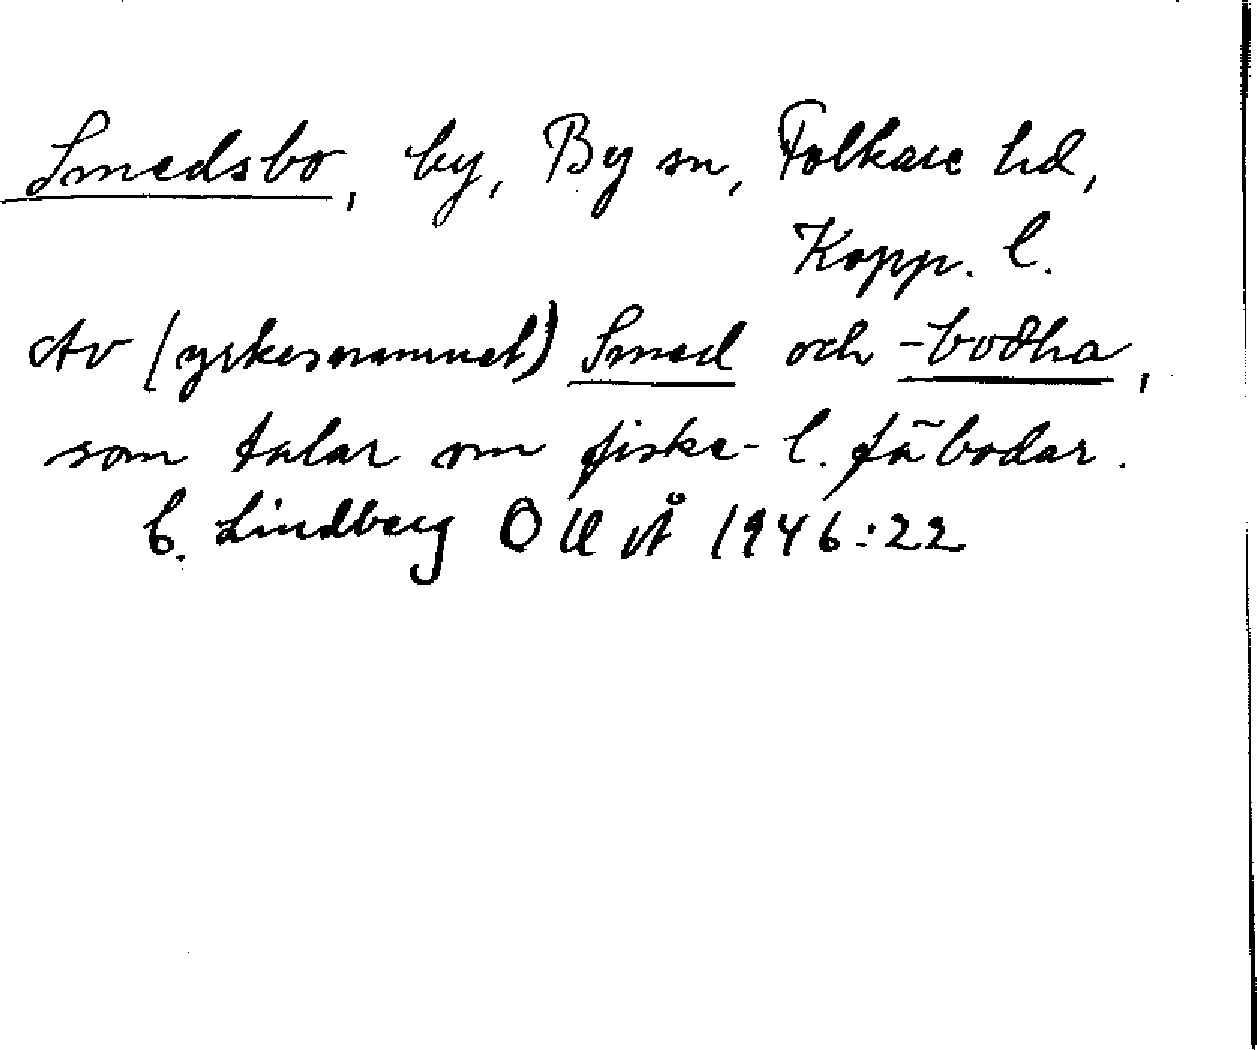 Smedsbo, by, By sn, Folkare hd,
Kopp. l.
Av (yrkesnamnet) Smed och -bodha,
som talar om fiske- l. fäbodar.
C. Lindberg OUÅ 1946:22